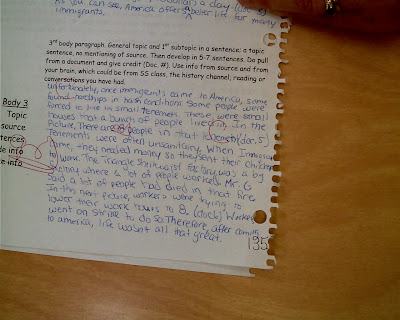 As you can see, America offers a better life for many
immigrants.
3rd body paragraph. General topic and 1st subtopic in a sentence: a topic
sentence, no mentioning of source. Then develop in 5-7 sentences. Do pull
from a document and give credit (Doc. #). Use info from source and from
your brain, which could be from SS class, the history channel, reading or
conversations you have had.
Body 3
Topic
source
tences
de info
e info
Unfortionately, once immigrants came to America, some
found in harsh conditions. Some people were
forced to live in small tenements. These were small
houses that a bunch of people lived in. In the
picture, There are people in that (doc. 5)
Tenements were often unsanitary. When Immigrants
came, they needed money so they sent their children
to work. The Triangle Shirtwaist factory was a big
where a lot of people worked. Mr. G
said a lot of people had died in that fire.
In the next picture, workers were trying to
lower their work hours to 8. (doc 6) Workers
went on strike to do so. Therefore, after coming
to america, life wasn't all that great.
195